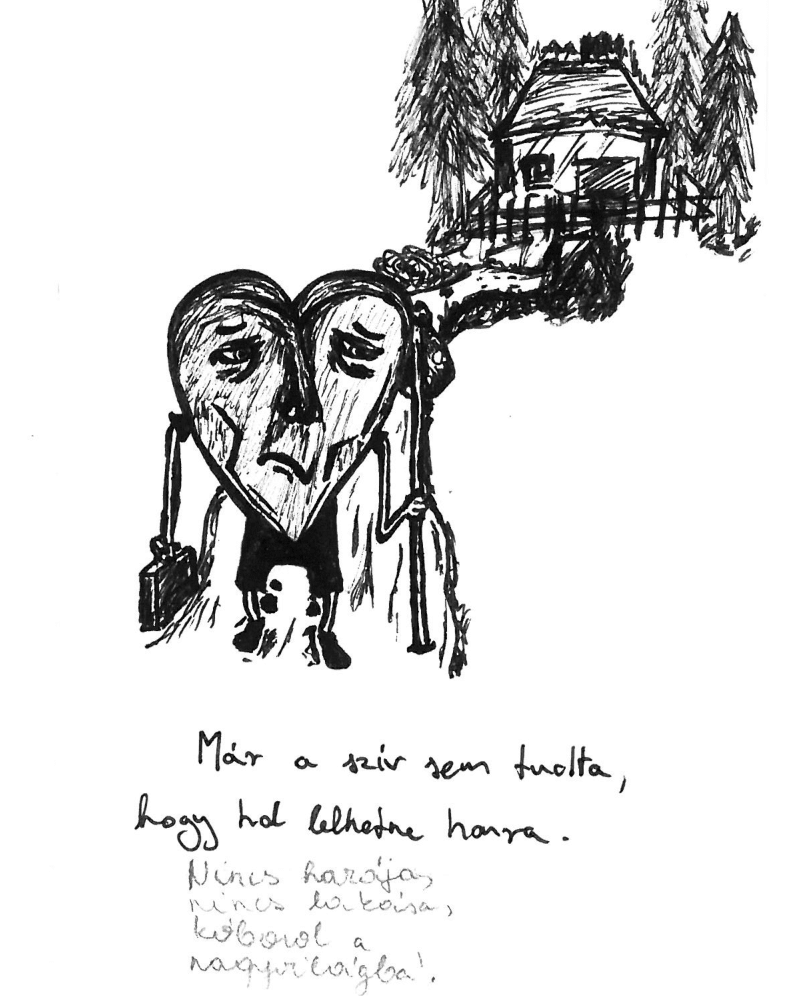 Már a szív sem tudta,
hogy hol lelhetne honra.
Nincs hazája,
nincs lakása,
kóborol a
nagyvilágba!.